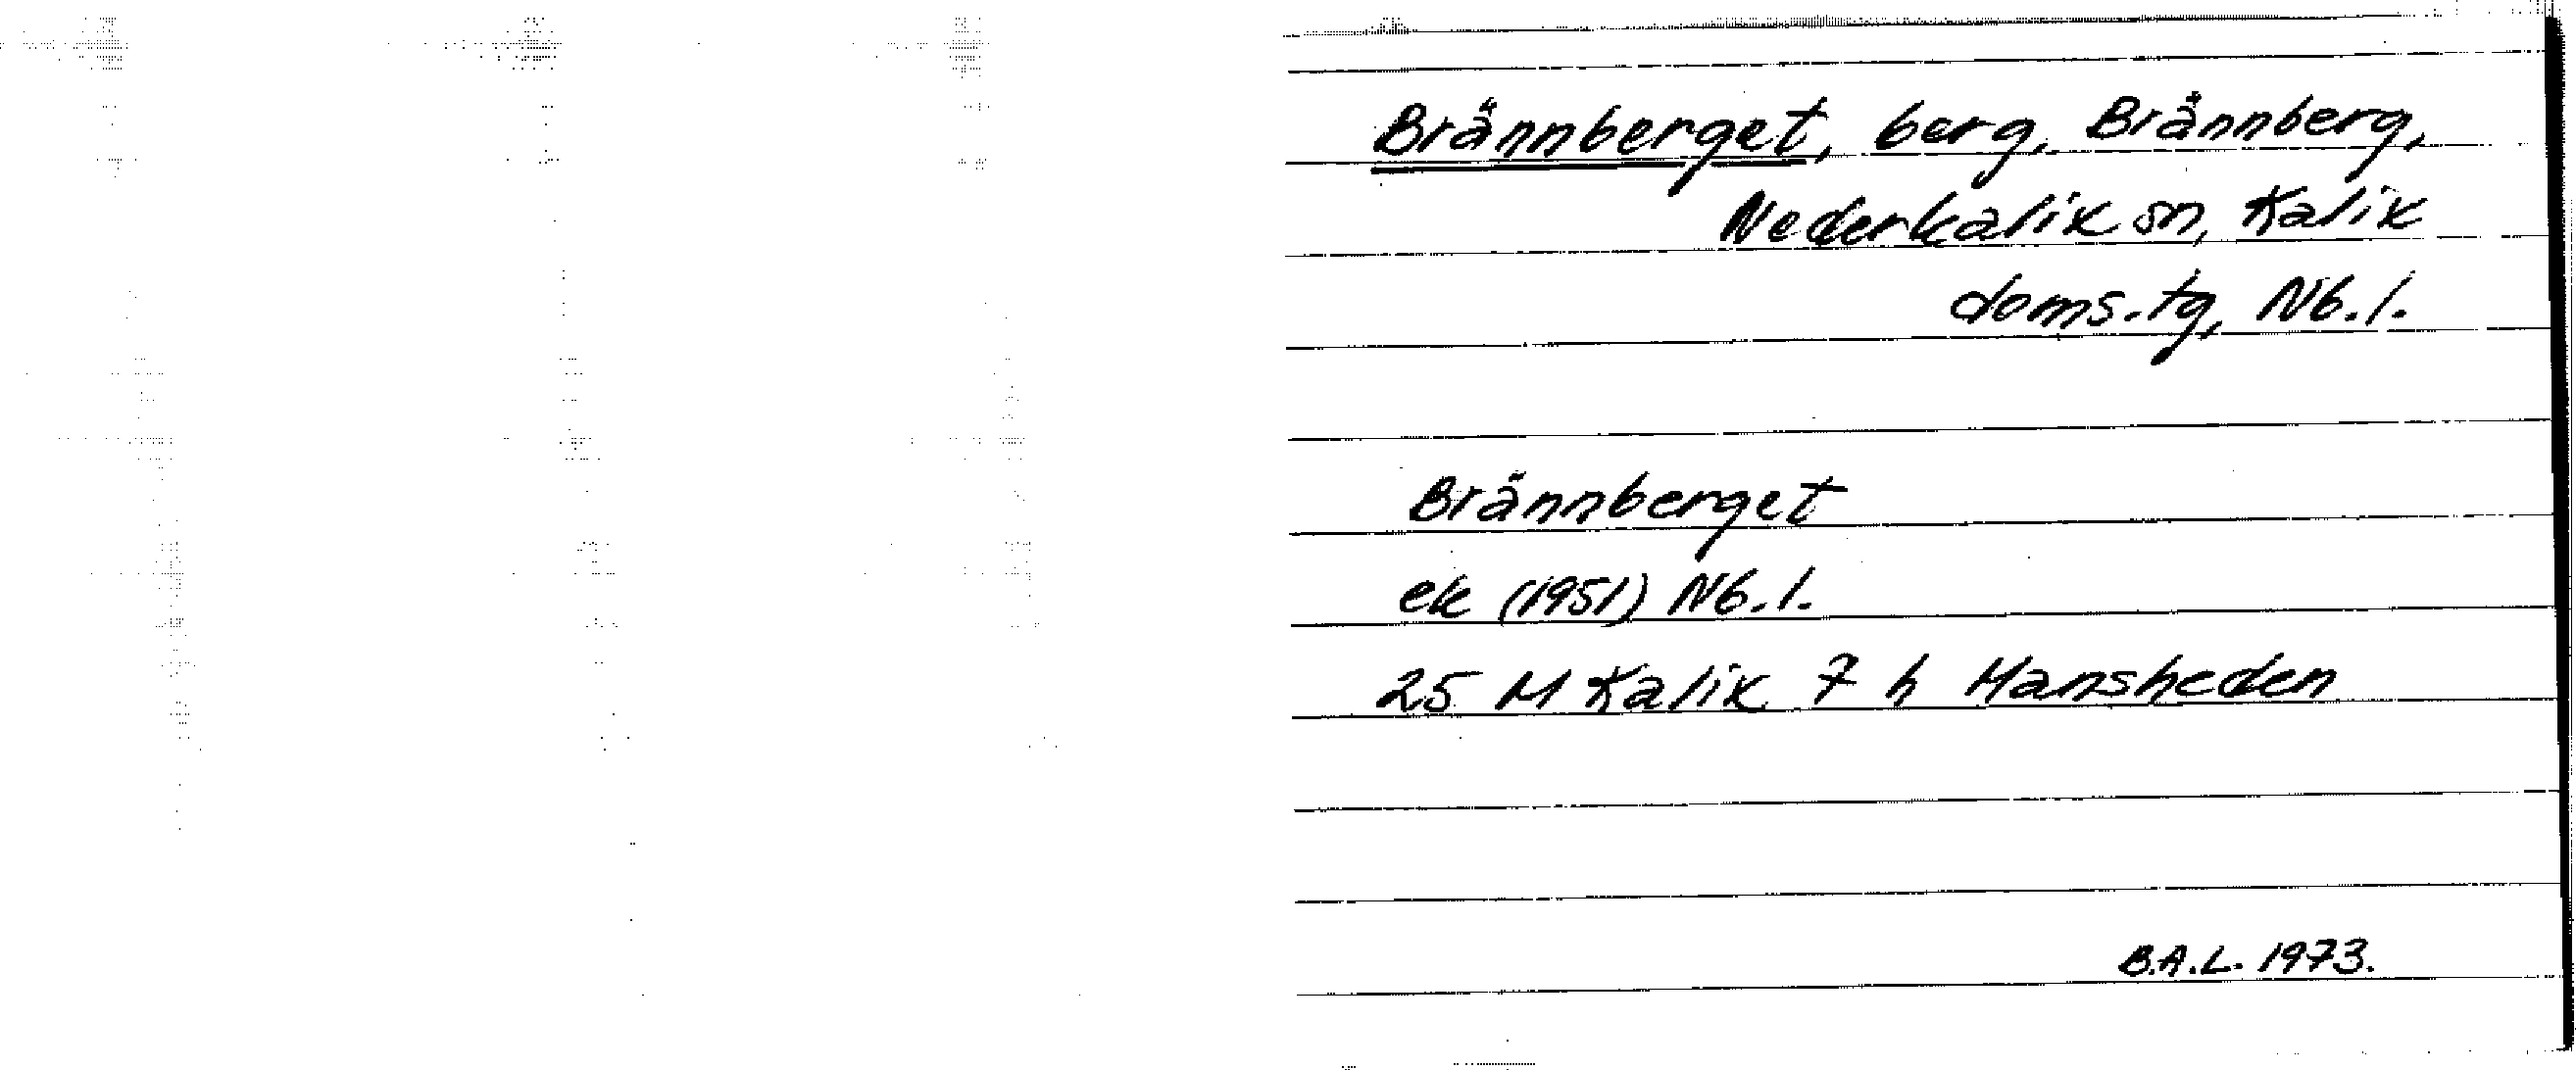 Brännberget, berg, Brännberg,
Nederkalix sn, Kalix
doms.tg, Nb.l.
Brännberget
ek (1951) Nb.l.
25 M Kalix 7 h Månsheden
B.A.L. 1973.